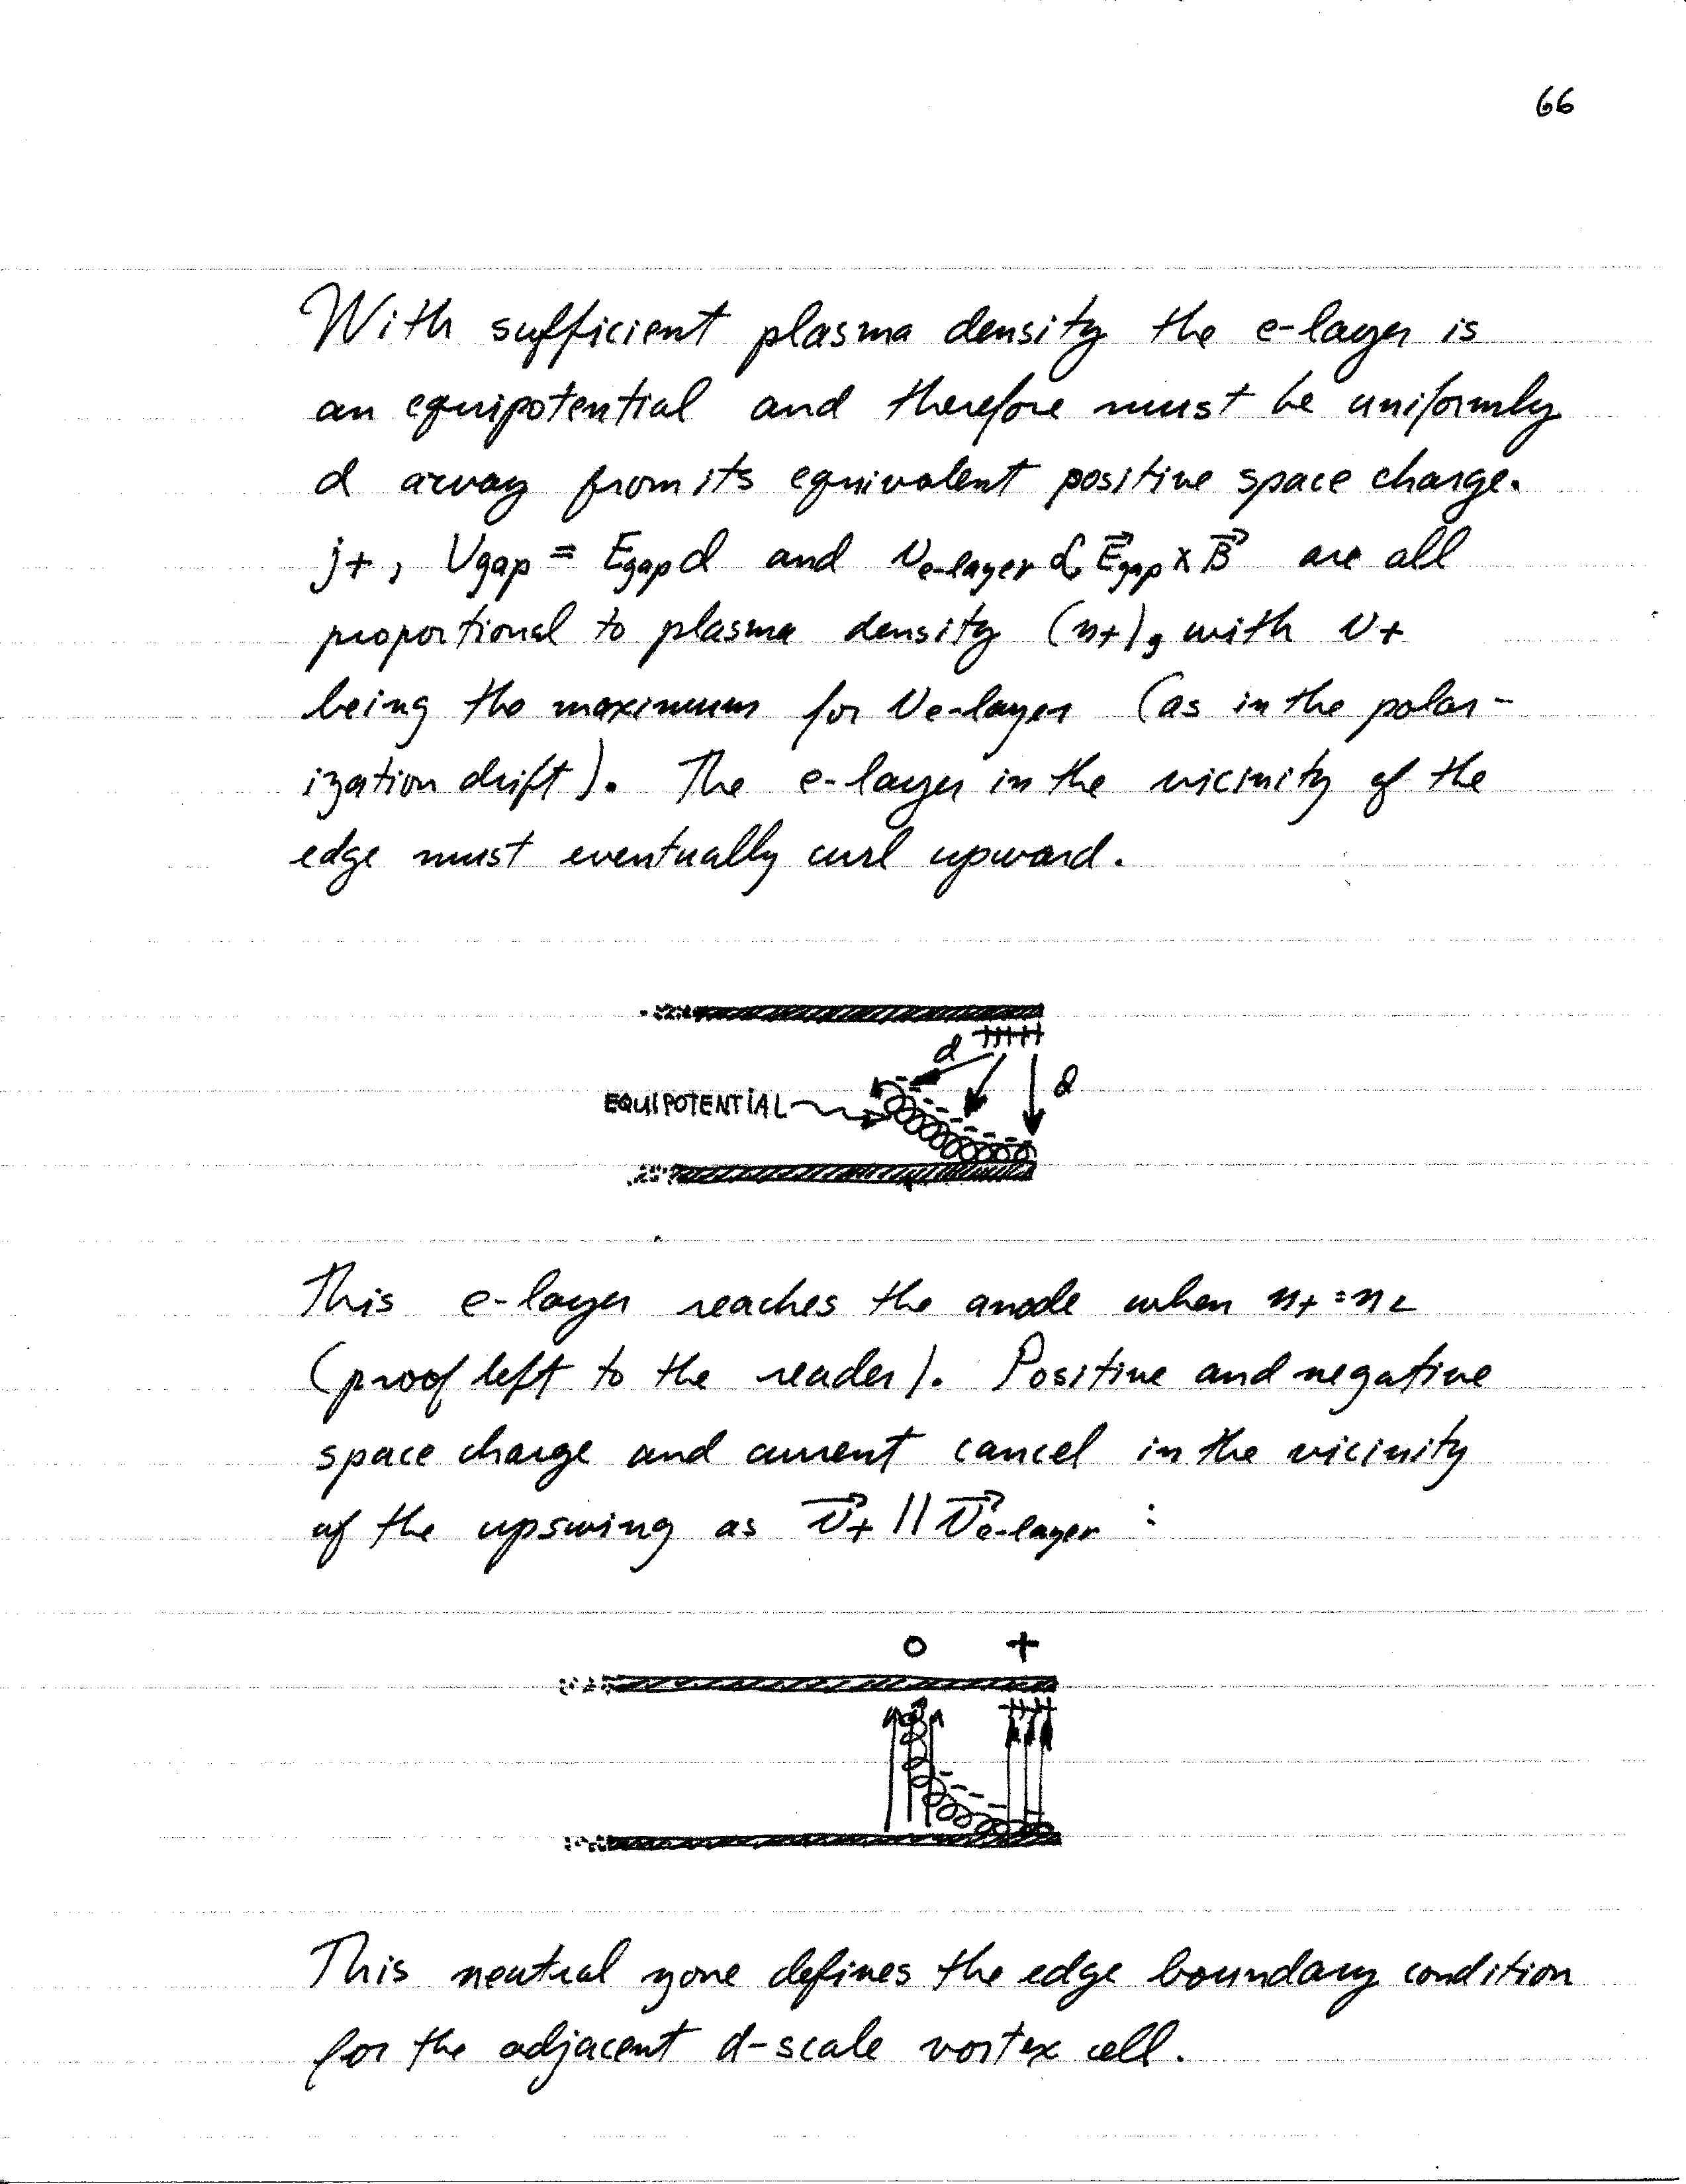 66
With sufficient plasma density the e-layer is
an equipotential and therefore must be uniformly
d away from its equivalent positive space charge.
j+, Vgap = Egap d and ve-layer α E⃗gap x B⃗ are all
proportional to plasma density (n+), with v+
being the maximum for ve-layer (as in the polar-
ization drift). The e-layer in the vicinity of the
edge must eventually curl upward.
++++
d
d
EQUIPOTENTIAL
This e-layer reaches the anode when n+ = nL
(proof left to the reader). Positive and negative
space charge and current cancel in the vicinity
of the upswing as v⃗+ // v⃗e-layer :
o +
This neutral zone defines the edge boundary condition
for the adjacent d-scale vortex cell.